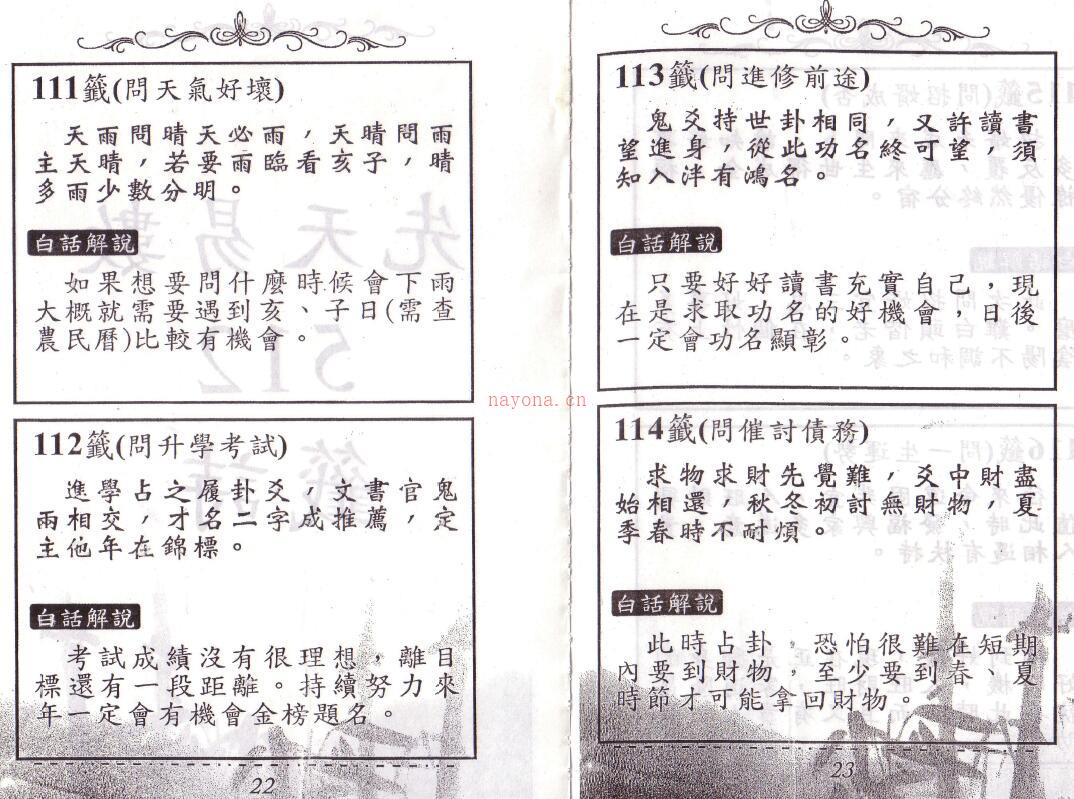 111籤(問天氣好壞)
天雨問晴天必雨，天晴問雨
主天晴，若要雨臨看亥子，晴
多雨少數分明。
白話解說
如果想要問什麼時候會下雨
大概就需要遇到亥、子日(需查
農民曆)比較有機會。
112籤(問升學考試)
進學占之履卦爻，文書官鬼
兩相交，才名二字成推薦，定
主他年在錦標。
白話解說
考試成績沒有很理想，離目
標還有一段距離。持續努力來
年一定會有機會金榜題名。
22
113籤(問進修前途)
鬼爻持世卦相同，又許讀書
望進身，從此功名終可望，須
知入泮有鴻名。
白話解說
只要好好讀書充實自己，現
在是求取功名的好機會，日後
一定會功名顯彰。
114籤(問催討債務)
求物求財先覺難，爻中財盡
始相還，秋冬初討無財物，夏
季春時不耐煩。
白話解說
此時占卦，恐怕很難在短期
內要到財物，至少要到春、夏
時節才可能拿回財物。
23
nayona.cn